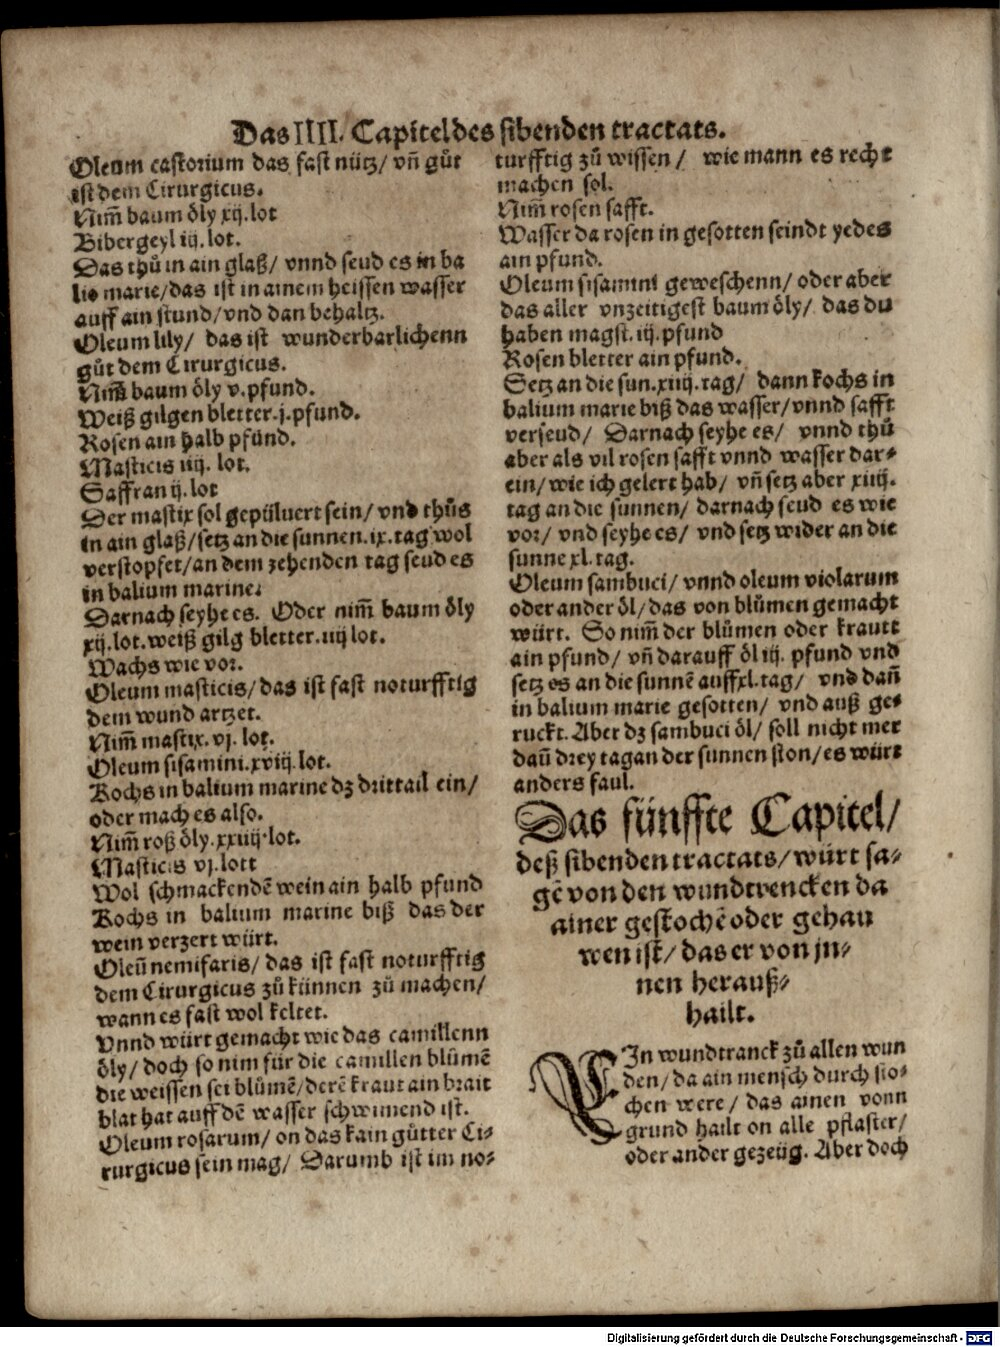 Das IIII. Capitel des sibenden tractats.
Oleum castorium das fast nütz/ vñ gůt
ist dem Cirurgicus.
Nim̃ baum öly xij. lot
Bibergeyl iij. lot.
Das thů in ain glaß/ vnnd seud es in ba
lio marie/das ist in ainem heissen wasser
auff ain stund/vnd dan behaltz.
Oleum lily/ das ist wunderbarlichenn
gůt dem Cirurgicus.
Nim̃ baum öly v. pfund.
Weiß gilgen bletter.j.pfund.
Rosen ain halb pfund.
Masticis iiij. lot.
Saffran ij. lot
Der mastix sol gepüluert sein/ vnd thůs
in ain glaß/setz an die sunnen.ix.tag wol
verstopfet/an dem zehenden tag seud es
in balium marine.
Darnach seyhe es. Oder nim̃ baum öly
xij.lot.weiß gilg bletter.iiij lot.
Wachs wie vor.
Oleum masticis/das ist fast noturfftig
dem wund artzet.
Nim̃ mastix.vj. lot.
Oleum sisamini.xviij.lot.
Kochs in balium marine dz drittail ein/
oder mach es also.
Nim̃ roß öly.xxiiij.lot.
Masticis vj.lott
Wol schmackendẽ wein ain halb pfund
Kochs in balium marine biß das der
wein verzert würt.
Oleũ nemifaris/ das ist fast noturfftig
dem Cirurgicus zů künnen zů machen/
wann es fast wol keltet.
Vnnd würt gemacht wie das camillenn
öly/ doch so nim für die camillen blůmẽ
die weissen sei blůmẽ/derẽ kraut ain brait
blat hat auff dẽ wasser schwimend ist.
Oleum rosarum/ on das kain gůtter Ci-
rurgicus sein mag/ Darumb ist im no-
turfftig zů wissen/ wie mann es recht
machen sol.
Nim̃ rosen safft.
Wasser da rosen in gesotten seindt yedes
ain pfund.
Oleum sisamini geweschenn/ oder aber
das aller vnzeitigest baum öly/ das du
haben magst. iij. pfund
Rosen bletter ain pfund.
Setz an die sun.xiiij.tag/ dann kochs in
balium marie biß das wasser/vnnd safft
verseud/ Darnach seyhe es/ vnnd thů
aber als vil rosen safft vnnd wasser dar-
ein/wie ich gelert hab/ vñ setz aber xiiij.
tag an die sunnen/ darnach seud es wie
vor/ vnd seyhe es/ vnd setz wider an die
sunne xl. tag.
Oleum sambuci/ vnnd oleum violarum
oder ander öl/das von blůmen gemacht
würt. So nim̃ der blůmen oder krautt
ain pfund/ vñ darauff öl iij. pfund vnd
setz es an die sunnẽ auff xl.tag/ vnd dañ
in balium marie gesotten/ vnd auß ge-
ruckt. Aber dz sambuci öl/ soll nicht mer
dañ drey tag an der sunnen ston/es würt
anders faul.
Das fünffte Capitel/
deß sibenden tractats/würt sa-
gẽ von den wundtrencken da
ainer gestochẽ oder gehau
wen ist/ das er von jn-
nen herauß-
hailt.
EIn wundtranck zů allen wun
den/da ain mensch durch sto-
chen were/ das ainen vonn
grund hailt on alle pflaster/
oder ander gezeüg. Aber doch
Digitalisierung gefördert durch die Deutsche Forschungsgemeinschaft - DFG